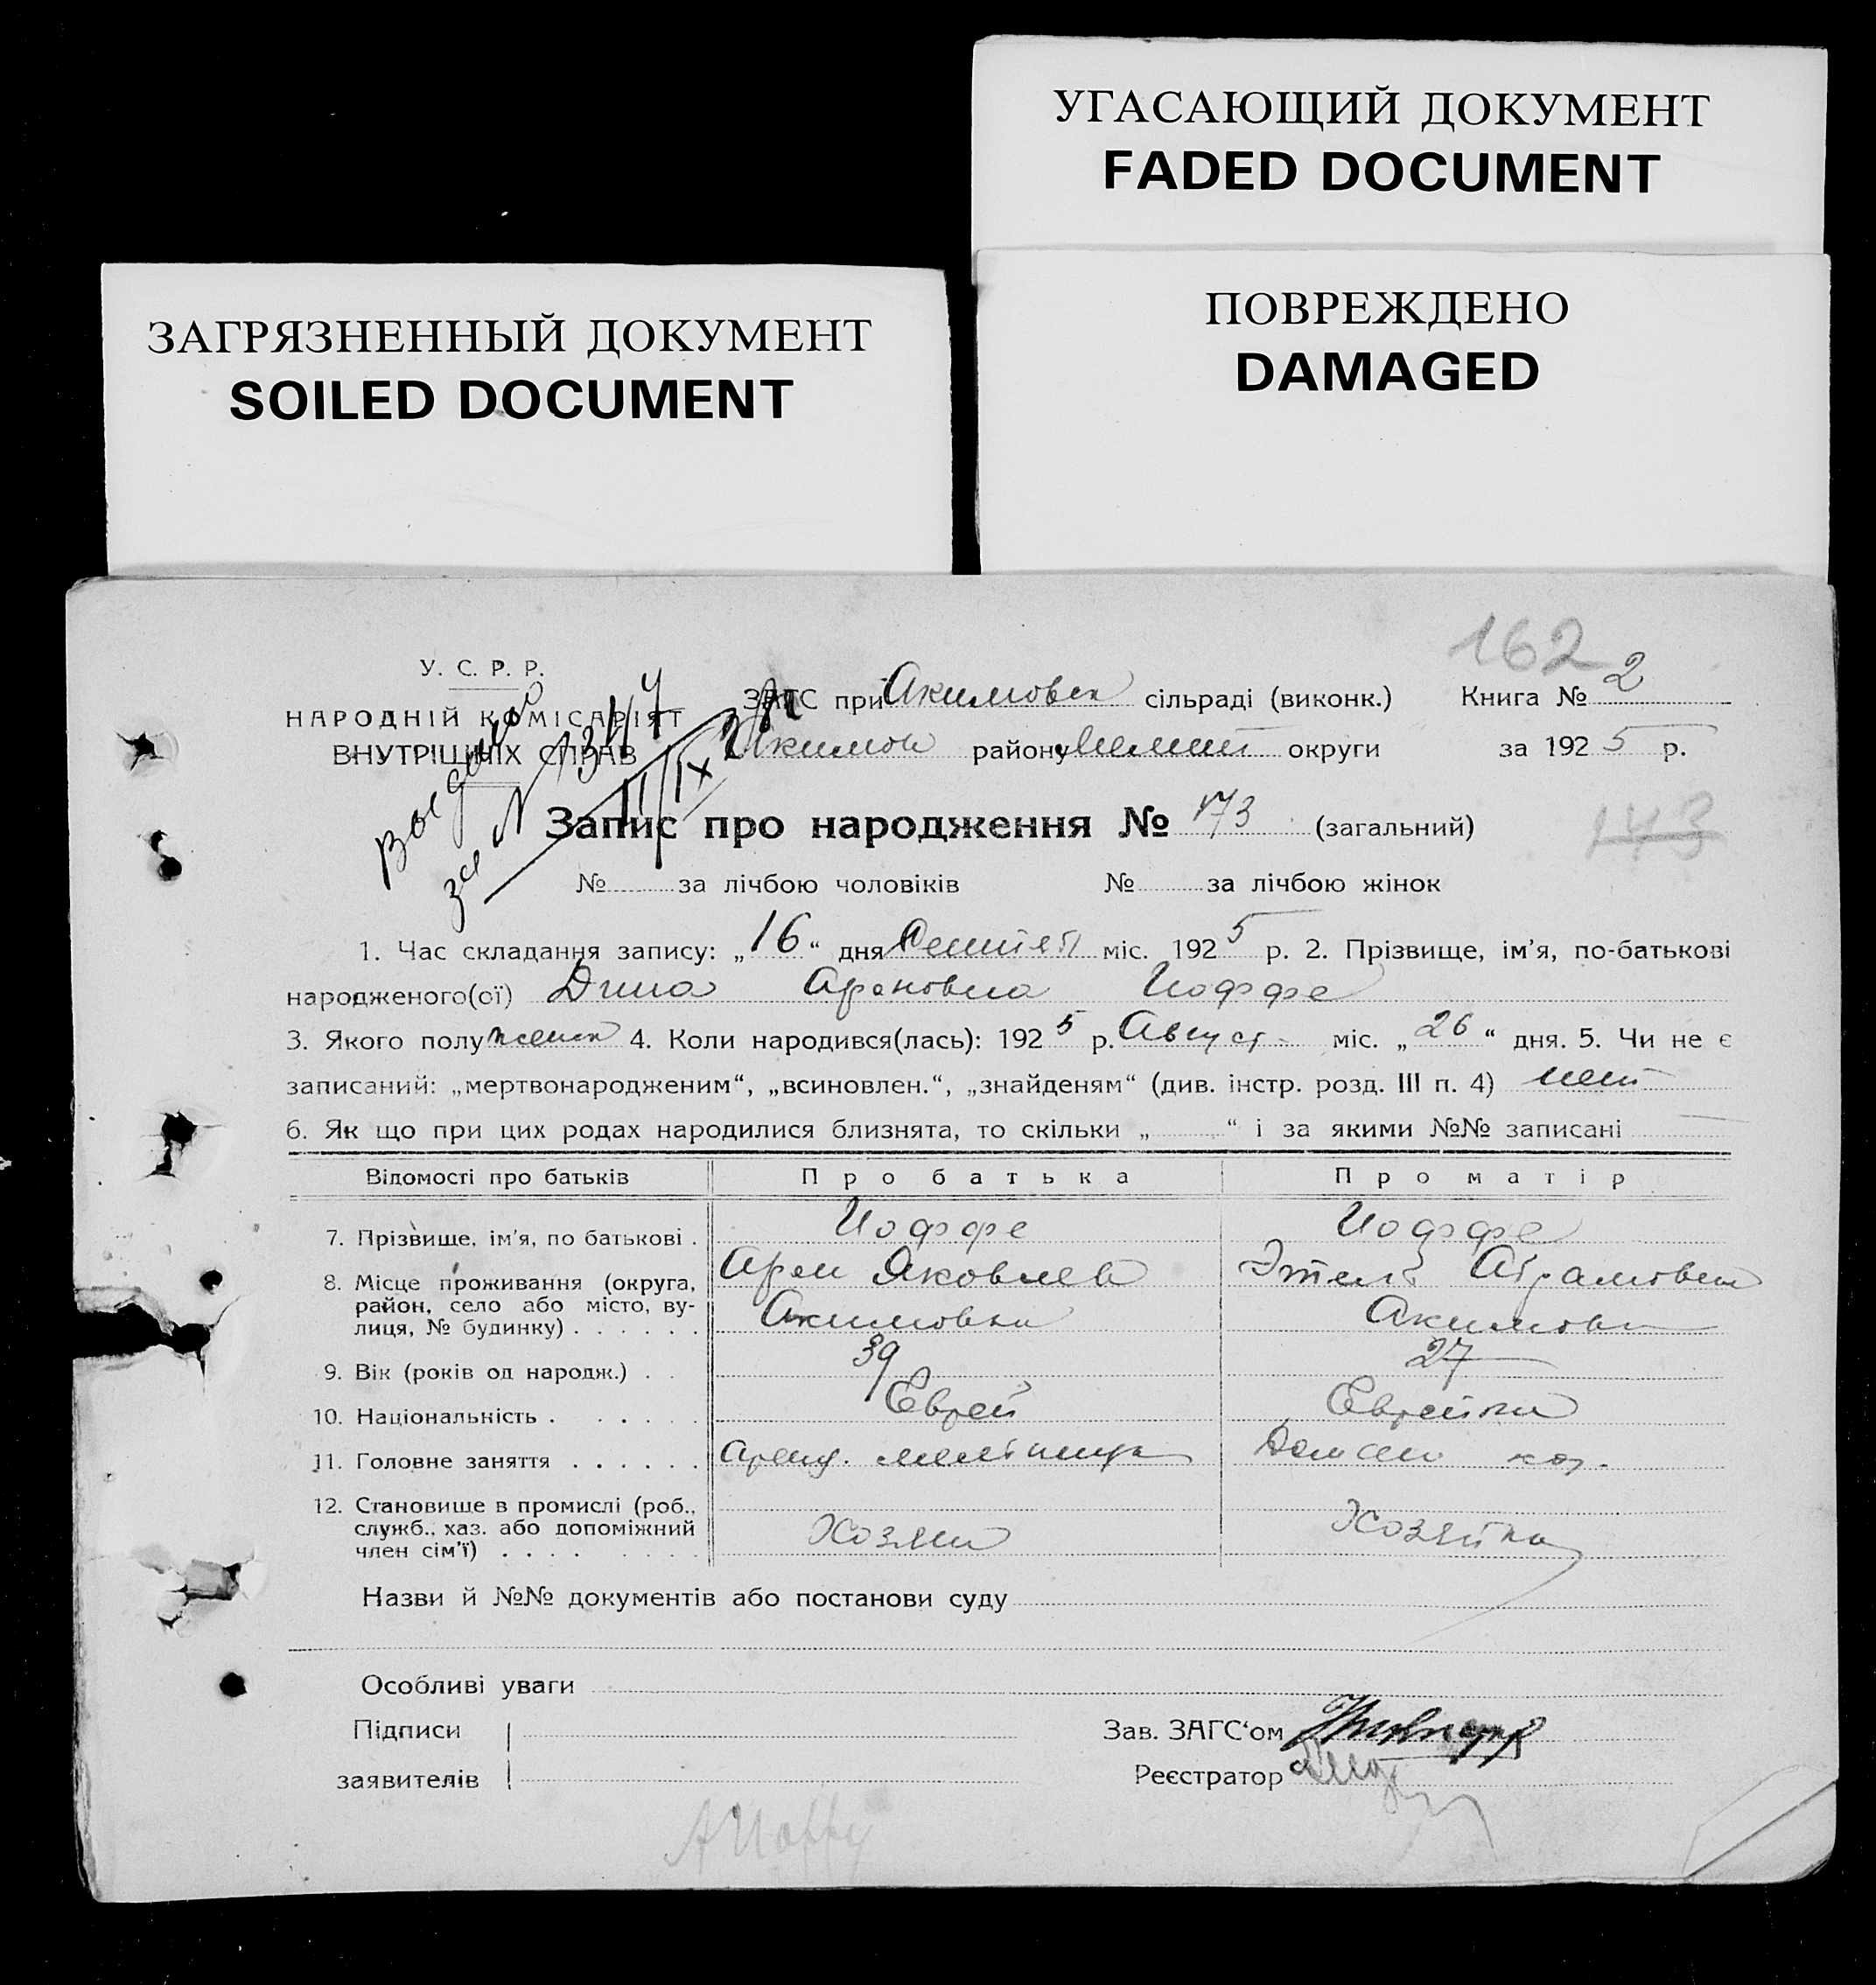 УГАСАЮЩИЙ ДОКУМЕНТ
FADED DOCUMENT
ЗАГРЯЗНЕННЫЙ ДОКУМЕНТ
SOILED DOCUMENT
ПОВРЕЖДЕНО
DAMAGED
162
У. С. Р. Р.
НАРОДНІЙ КОМІСАРІЯТ
ВНУТРІШНІХ СПРАВ
ЗАГС при Акимовск сільраді (виконк.) Книга № 2
Акимов району Мелит округи за 1925 р.
Запис про народження № 173 (загальний)
173
№ за лічбою чоловіків № за лічбою жінок
1. Час складання запису: „16“ дня Сентяб міс. 1925 р. 2. Прізвище, ім’я, по-батькові
народженого(ої) Дина Ароновна Иоффе
3. Якого полу женск 4. Коли народився(лась): 1925 р. Август міс. „26“ дня. 5. Чи не є
записаний: „мертвонародженим“, „всиновлен.“, „знайденям“ (див. інстр. розд. III п. 4) нет
6. Як що при цих родах народилися близнята, то скільки „ “ і за якими №№ записані
Відомості про батьків Про батька Про матір
7. Прізвище, ім’я, по батькові . Иоффе Иоффе
Арон Яковлев Этель Абрамовна
8. Місце проживання (округа,
район, село або місто, ву-
лиця, № будинку) . . . . . . Акимовка Акимовк
9. Вік (років од народж.) . . 39 27
10. Національність . . . . . Еврей Еврейка
11. Головне заняття . . . . . . Аренд. мельница Домаш хоз.
12. Становище в промислі (роб.,
служб., хаз. або допоміжний
член сім’ї) . . . . . . . . Хозяин Хозяйка
Назви й №№ документів або постанови суду
Особливі уваги
Підписи
заявителів
Зав. ЗАГС‘ом
Реєстратор
АИоффе